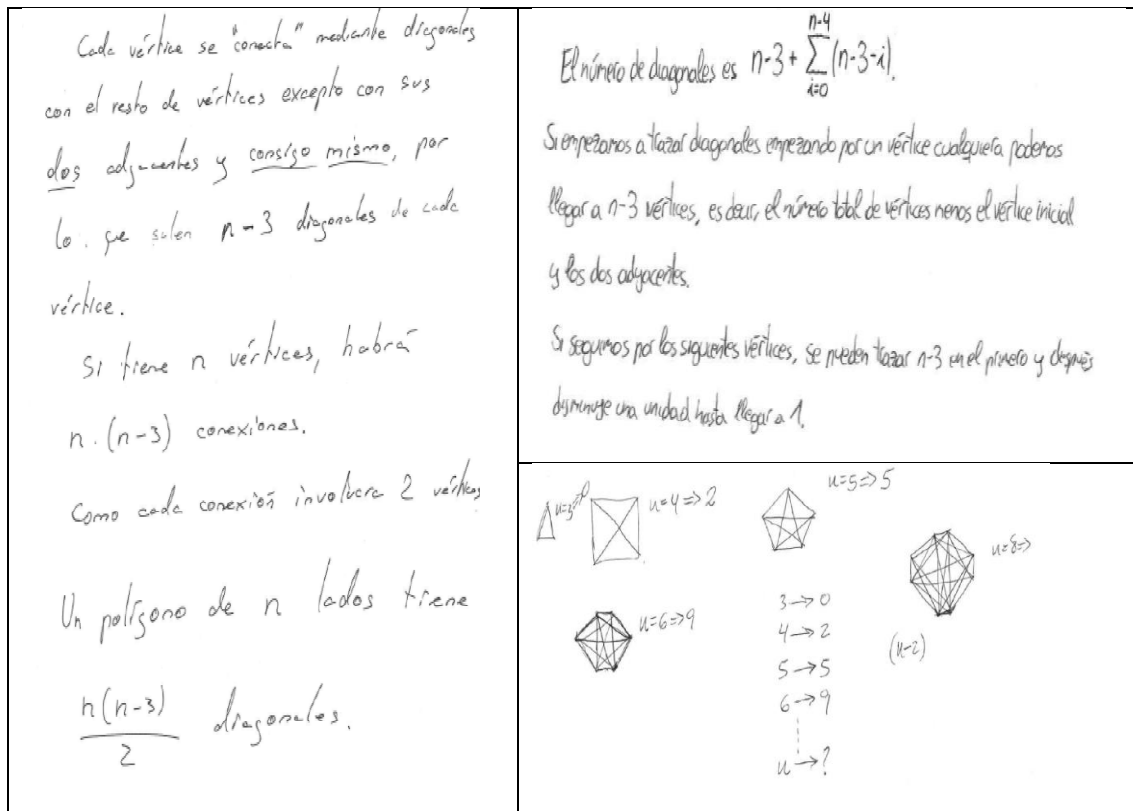 Cada vértice se "conecta" mediante diagonales
con el resto de vértices excepto con sus
dos adyacentes y consigo mismo, por
lo que salen n-3 diagonales de cada
vértice.
Si tiene n vértices, habrá
n.(n-3) conexiones.
Como cada conexión involucra 2 vértices
Un polígono de n lados tiene
n(n-3)
2
diagonales.
El número de diagonales es n-3 + ∑_{i=0}^{n-4} (n-3-i).
Si empezamos a trazar diagonales empezando por un vértice cualquiera podemos
llegar a n-3 vértices, es decir, el número total de vértices menos el vértice inicial
y los dos adyacentes.
Si seguimos por los siguientes vértices, se pueden trazar n-3 en el primero y después
disminuye una unidad hasta llegar a 1.
n=3⇒0
n=4⇒2
n=5⇒5
n=8⇒
n=6⇒9
3→0
4→2
5→5
6→9
n→?
(n-2)